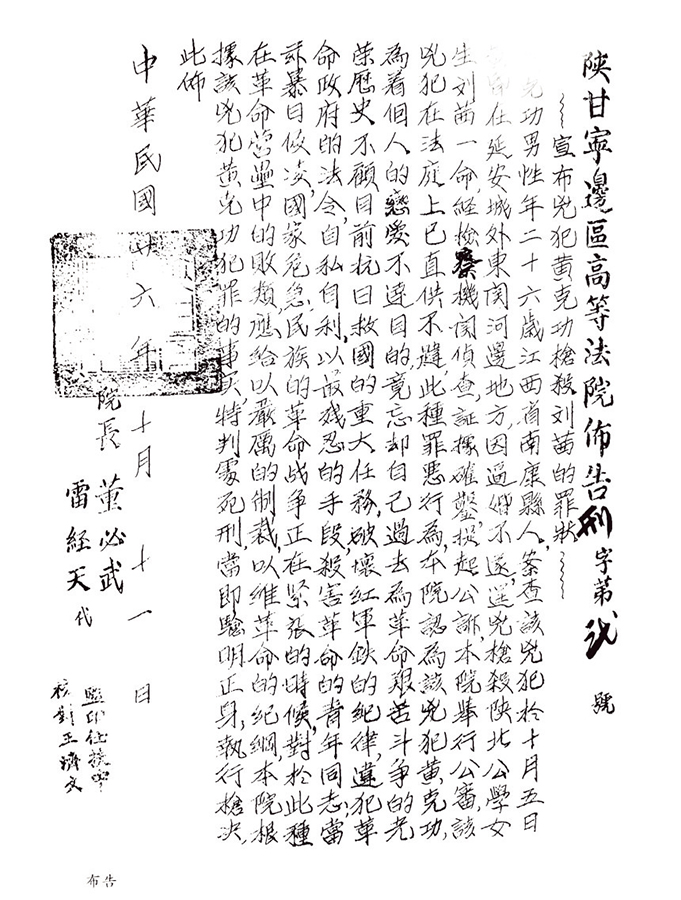 陝甘寧邊區高等法院佈告刑字第 號
宣布兇犯黃克功槍殺刘茜的罪狀
克功男性年二十六歲江西省南康縣人,案查該兇犯於十月五日
在延安城外東関河邊地方,因逼婚不遂,逞兇槍殺陝北公學女
生刘茜一命,經檢察機関偵查証據確鑿,提起公訴,本院舉行公審,該
兇犯在法庭上已直供不諱,此種罪惡行為,本院認為該兇犯黃克功,
為着個人的戀愛不達目的,竟忘却自己過去為革命艱苦斗争的光
荣歷史,不顧目前抗日救國的重大任務,破壞紅軍鉄的紀律,違犯革
命政府的法令,自私自利,以最残忍的手段,殺害革命的青年同志,當
茲暴日侵凌,國家危急,民族的革命战争正在緊張的時候,對於此種
在革命营壘中的敗類,應給以嚴厲的制裁,以維革命的紀綱,本院根
據該兇犯黃克功犯罪的事实,特判處死刑,當即驗明正身,執行槍决,
此佈
中華民國廿六年十月十一日
院長 董必武
雷經天 代
監印任扶中
校對王濟文
布告